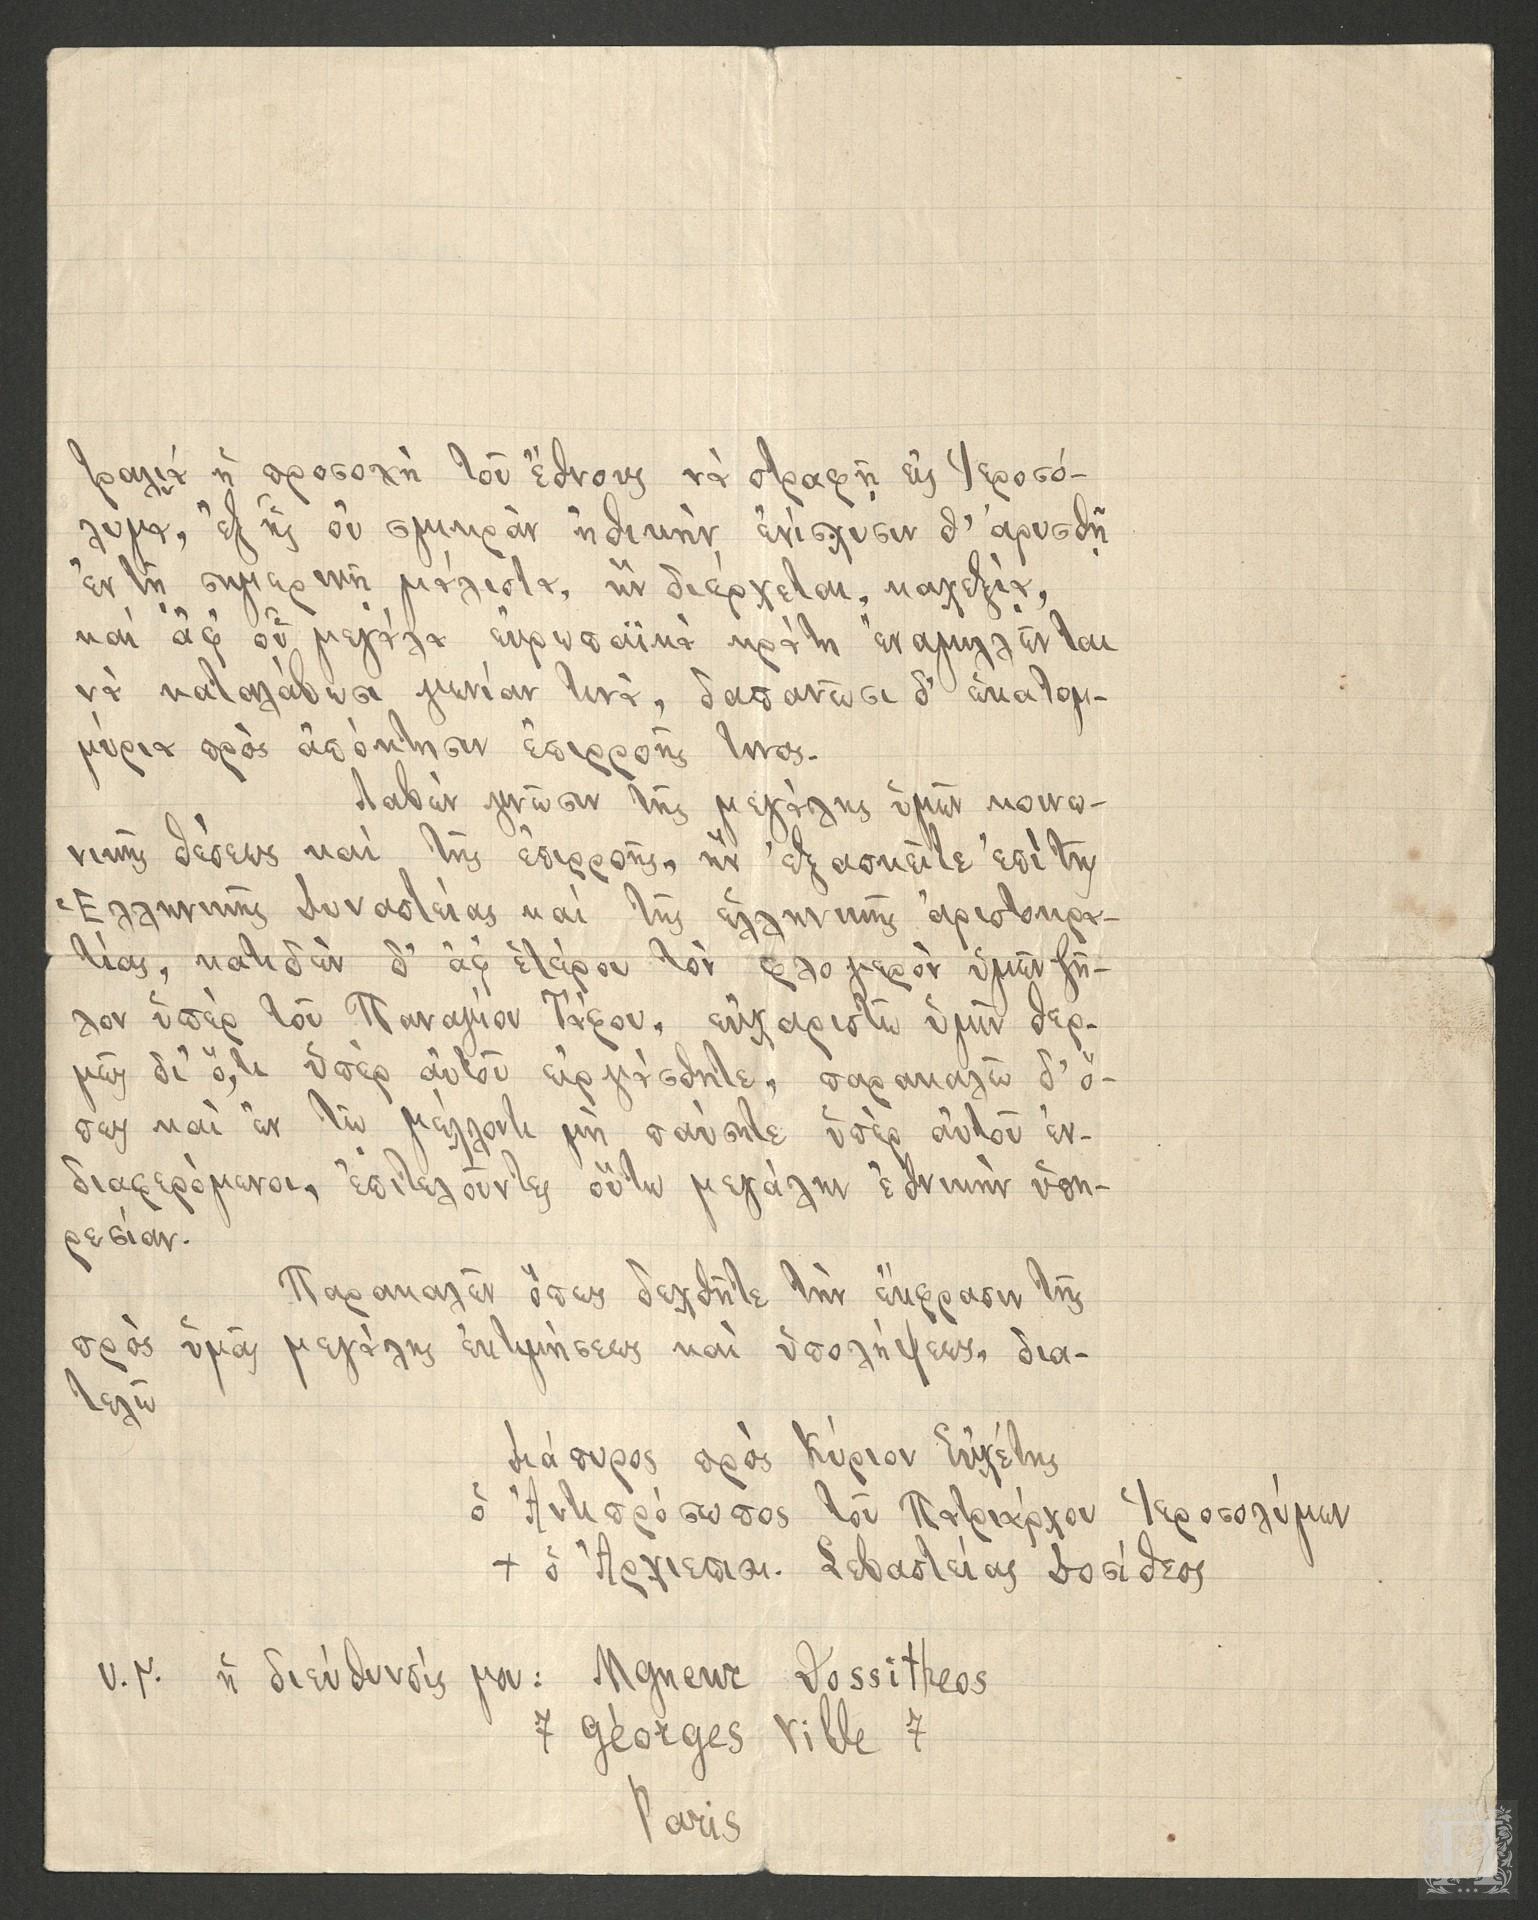 τραλιᾷ ἡ προσοχὴ τοῦ Ἔθνους νὰ στραφῇ εἰς Ἱεροσό-
λυμα, ἐξ ἧς οὐ σμικρὰν ἠθικὴν ἐνίσχυσιν θ' ἀρυσθῇ
ἐν τῇ σημερινῇ μάλιστα, ἣν διέρχεται, καχεξίᾳ,
καὶ ἀφ' οὗ μεγάλα εὐρωπαϊκὰ κράτη ἐναμιλλῶνται
νὰ καταλάβωσι γωνίαν τινὰ, δαπανῶσι δ' ἑκατομ-
μύρια πρὸς ἀπόκτησιν ἐπιρροῆς τινος.
Λαβὼν γνῶσιν τῆς μεγάλης ὑμῶν κοινω-
νικῆς θέσεως καὶ τῆς ἐπιρροῆς, ἣν ἐξασκεῖτε ἐπὶ τῆς
Ἑλληνικῆς Δυναστείας καὶ τῆς ἑλληνικῆς ἀριστοκρα-
τίας, κατιδὼν δ' ἀφ' ἑτέρου τὸν φλογερὸν ὑμῶν ζῆ-
λον ὑπὲρ τοῦ Παναγίου Τάφου, εὐχαριστῶ ὑμῖν θερ-
μῶς δι' ὅ,τι ὑπὲρ αὐτοῦ εἰργάσθητε, παρακαλῶ δ' ὅ-
πως καὶ ἐν τῷ μέλλοντι μὴ παύσητε ὑπὲρ αὐτοῦ ἐν-
διαφερόμενοι, ἐπιτελοῦντες οὕτω μεγάλην ἐθνικὴν ὑπη-
ρεσίαν.
Παρακαλῶν ὅπως δεχθῆτε τὴν ἔκφρασιν τῆς
πρὸς ὑμᾶς μεγάλης ἐκτιμήσεως καὶ ὑπολήψεως, δια-
τελῶ
Διάπυρος πρὸς Κύριον Εὐχέτης
ὁ Ἀντιπρόσωπος τοῦ Πατριάρχου Ἱεροσολύμων
+ ὁ Ἀρχιεπισκ. Σεβαστείας Δοσίθεος
υ.γ. ἡ διεύθυνσίς μου: Mgneur Dossitheos
7 Géorges Ville 7
Paris